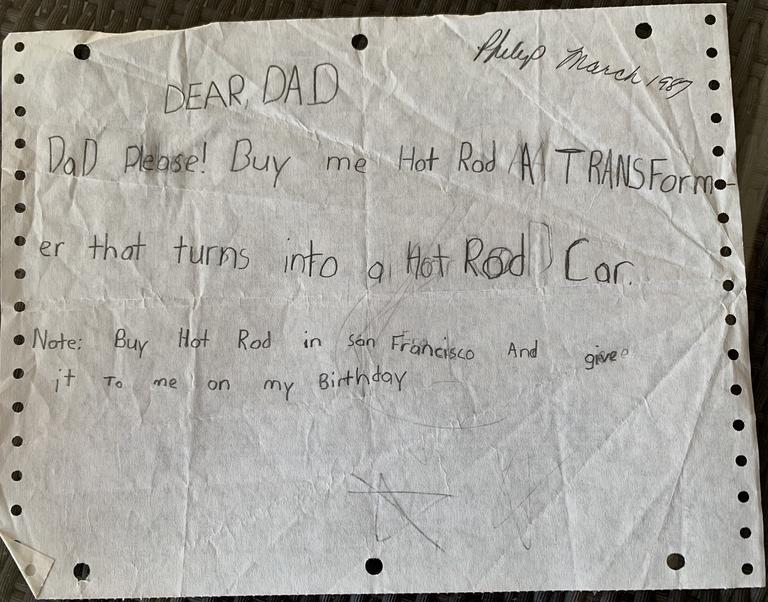 Philip March 1987
DEAR, DAD
DaD Please! Buy me Hot Rod A TRANSForm-
er that turns into a Hot Rod Car.
Note: Buy Hot Rod in san Francisco And give
it To me on my Birthday